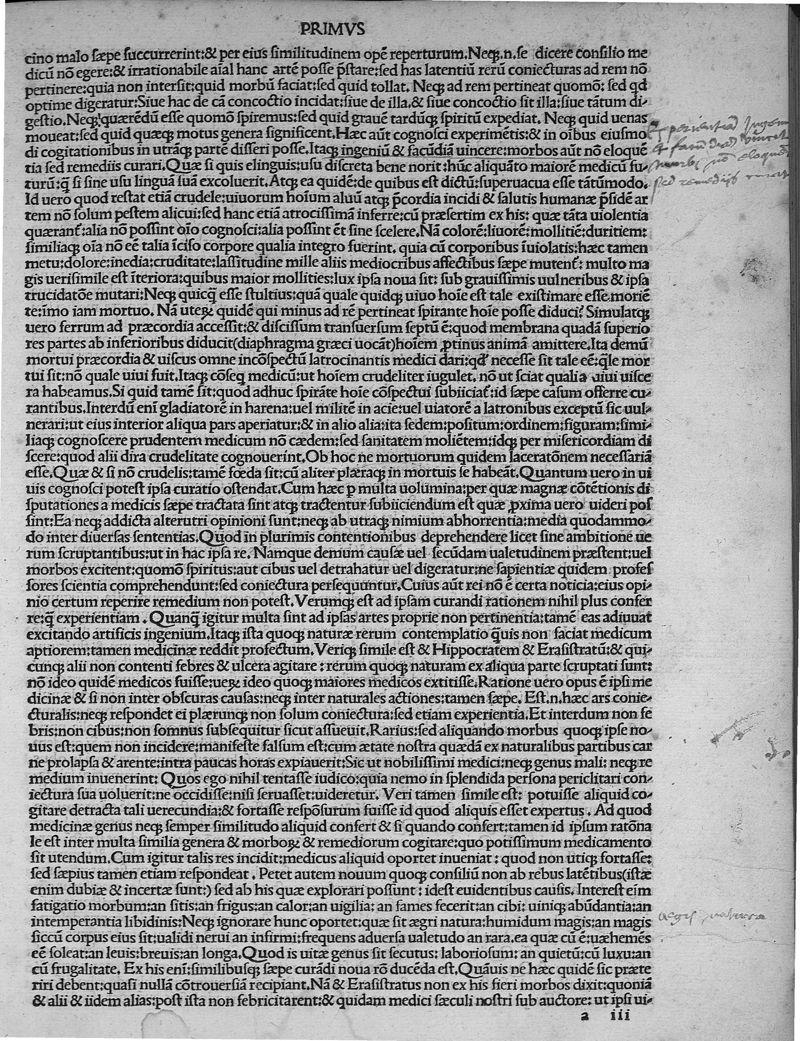 PRIMVS
cino malo sæpe succurrerint:& per eius similitudinem opē reperturum.Neq;.n.se dicere consilio me
dicū nō egere:& irrationabile aīal hanc artē posse p̄stare:sed has latentiū rerū coniecturas ad rem nō
pertinere:quia non intersit:quid morbū faciat:sed quid tollat. Neq; ad rem pertineat quomō: sed qd
optime digeratur:Siue hac de cā concoctio incidat:siue de illa.& siue concoctio sit illa:siue tātum di-
gestio.Neq; quærēdū esse quomō spiremus:sed quid grauē tardūq; spiritū expediat. Neq; quid uenas
moueat:sed quid quæq; motus genera significent.Hæc aūt cognosci experimētis:& in oībus eiusmo
di cogitationibus in utrāq; partē disseri posse.Itaq; ingeniū & facūdiā uincere:morbos aūt nō eloquē
tia sed remediis curari.Quæ si quis elinguis:usu discreta bene norit:hūc aliquāto maiorē medicū fu-
turū:q̄ si sine usu linguā suā excoluerit.Atq; ea quidē:de quibus est dictū:superuacua esse tātūmodo.
Id uero quod restat etiā crudele:uiuorum hoīum aluū atq; p̄cordia incidi & salutis humanæ p̄sidē ar
tem nō solum pestem alicui:sed hanc etiā atrocissimā inferre:cū præsertim ex his: quæ tāta uiolentia
quærant̄:alia nō possint oīo cognosci:alia possint ēt sine scelere.Nā colorē:liuorē:mollitiē:duritiem:
similiaq; oīa nō eē talia īciso corpore qualia integro fuerint. quia cū corporibus īuiolatis:hæc tamen
metu:dolore:inedia:cruditate:lassitudine mille aliis mediocribus affectibus sæpe mutent̄: multo ma
gis uerisimile est īteriora:quibus maior mollities:lux ipsa noua sit: sub grauissimis uulneribus & ipsa
trucidatōe mutari:Neq; quicq̄ esse stultius:quā quale quidq; uiuo hoīe est tale existimare esse.moriē
te:īmo iam mortuo. Nā uteꝝ quidē qui minus ad rē pertineat spirante hoīe posse diduci. Simulatq;
uero ferrum ad præcordia accessit:& discissum transuersum septū ē:quod membrana quadā superio
res partes ab inferioribus diducit(diaphragma græci uocāt)hoīem ꝓtinus animā amittere.Ita demū
mortui præcordia & uiscus omne incōspectū latrocinantis medici dari:qd necesse sit tale eē:qle mor
tui sit:nō quale uiui fuit.Itaq; cōseq̄ medicū:ut hoīem crudeliter iugulet.nō ut sciat qualia uiui uisce
ra habeamus.Si quid tamē sit:quod adhuc spirāte hoīe cōspectui subiiciat̄:id sæpe casum offerre cu-
rantibus.Interdū enī gladiatorē in harena:uel militē in acie:uel uiatorē a latronibus exceptū sic uul-
nerari:ut eius interior aliqua pars aperiatur:& in alio alia:ita sedem:positum:ordinem:figuram:simi-
liaq; cognoscere prudentem medicum nō cædem:sed sanitatem moliētem:idq; per misericordiam di
scere:quod alii dira crudelitate cognouerint.Ob hoc ne mortuorum quidem laceratōnem necessariā
esse.Quæ & si nō crudelis:tamē fœda sit:cū aliter plæraq; in mortuis se habeāt.Quantum uero in ui
uis cognosci potest ipsa curatio ostendat.Cum hæc p multa uolumina:per quæ magnæ cōtētionis di
sputationes a medicis sæpe tractata sint atq; tractentur subiiciendum est quæ ꝓxima uero uideri pos
sint:Ea neq; addicta alterutri opinioni sunt:neq; ab utraq; nimium abhorrentia:media quodammo-
do inter diuersas sententias.Quod in plurimis contentionibus deprehendere licet sine ambitione ue
rum scruptantibus:ut in hac ipsa re. Namque demum causæ uel secūdam ualetudinem præstent:uel
morbos excitent:quomō spiritus:aut cibus uel detrahatur uel digeratur:ne sapientiæ quidem profes
sores scientia comprehendunt:sed coniectura persequuntur.Cuius aūt rei nō ē certa noticia:eius opi-
nio certum reperire remedium non potest.Verumq; est ad ipsam curandi rationem nihil plus confer
re:q̄ experientiam.Quanq̄ igitur multa sint ad ipsas artes proprie non pertinentia:tamē eas adiuuāt
excitando artificis ingenium.Itaq; ista quoq; naturæ rerum contemplatio q̄uis non faciat medicum
aptiorem:tamen medicinæ reddit profectum.Veriq; simile est & Hippocratem & Erasistratū:& qui-
cunq; alii non contenti febres & ulcera agitare: rerum quoq; naturam ex aliqua parte scruptati sunt:
nō ideo quidē medicos fuisse:ueꝝ ideo quoq; maiores medicos extitisse.Ratione uero opus ē ipsi me
dicinæ & si non inter obscuras causas:neq; inter naturales actiones:tamen sæpe. Est.n.hæc ars conie-
cturalis:neq; respondet ei plærunq; non solum coniectura:sed etiam experientia.Et interdum non fe
bris:non cibus:non somnus subsequitur sicut assueuit.Rarius:sed aliquando morbus quoq; ipse no-
uus est:quem non incidere:manifeste falsum est:cum ætate nostra quædā ex naturalibus partibus car
ne prolapsa & arente:intra paucas horas expirauerit:Sic ut nobilissimi medici:neq; genus mali: neq; re
medium inuenerint: Quos ego nihil tentasse iudico:quia nemo in splendida persona periclitari con-
iectura sua uoluerit:ne occidisse:nisi seruasset:uideretur. Veri tamen simile est: potuisse aliquid co-
gitare detracta tali uerecundia:& fortasse respōsurum fuisse id quod aliquis esset expertus. Ad quod
medicinæ genus neq; semper similitudo aliquid confert & si quando confert:tamen id ipsum ratōna
le est inter multa similia genera & morboꝝ & remediorum cogitare:quo potissimum medicamento
sit utendum.Cum igitur talis res incidit:medicus aliquid oportet inueniat: quod non utiq; fortasse:
sed sæpius tamen etiam respondeat. Petet autem nouum quoq; consiliū non ab rebus latētibus(istæ
enim dubiæ & incertæ sunt:) sed ab his quæ explorari possunt: idest euidentibus causis. Interest eīm
fatigatio morbum:an sitis:an frigus:an calor:an uigilia: an fames fecerit:an cibi: uiniq; abūdantia:an
intemperantia libidinis:Neq; ignorare hunc oportet:quæ sit ægri natura:humidum magis:an magis
siccū corpus eius sit:ualidi nerui an infirmi:frequens aduersa ualetudo an rara.ea quæ cū ē:uæhemēs
eē soleat:an leuis:breuis:an longa.Quod is uitæ genus sit secutus: laboriosum: an quietū:cū luxu:an
cū frugalitate. Ex his enī:similibusq; sæpe curādi noua rō ducēda est.Quāuis ne hæc quidē sic præte
riri debent:quasi nullā cōtrouersiā recipiant.Nā & Erasistratus non ex his fieri morbos dixit:quoniā
& alii & iidem alias:post ista non febricitarent:& quidam medici sæculi nostri sub auctore: ut ipsi ui-
a iii
experientiā Ingeniū
& facundiā vincere
morbos nō eloquē
sed remediis curari
aegri natura